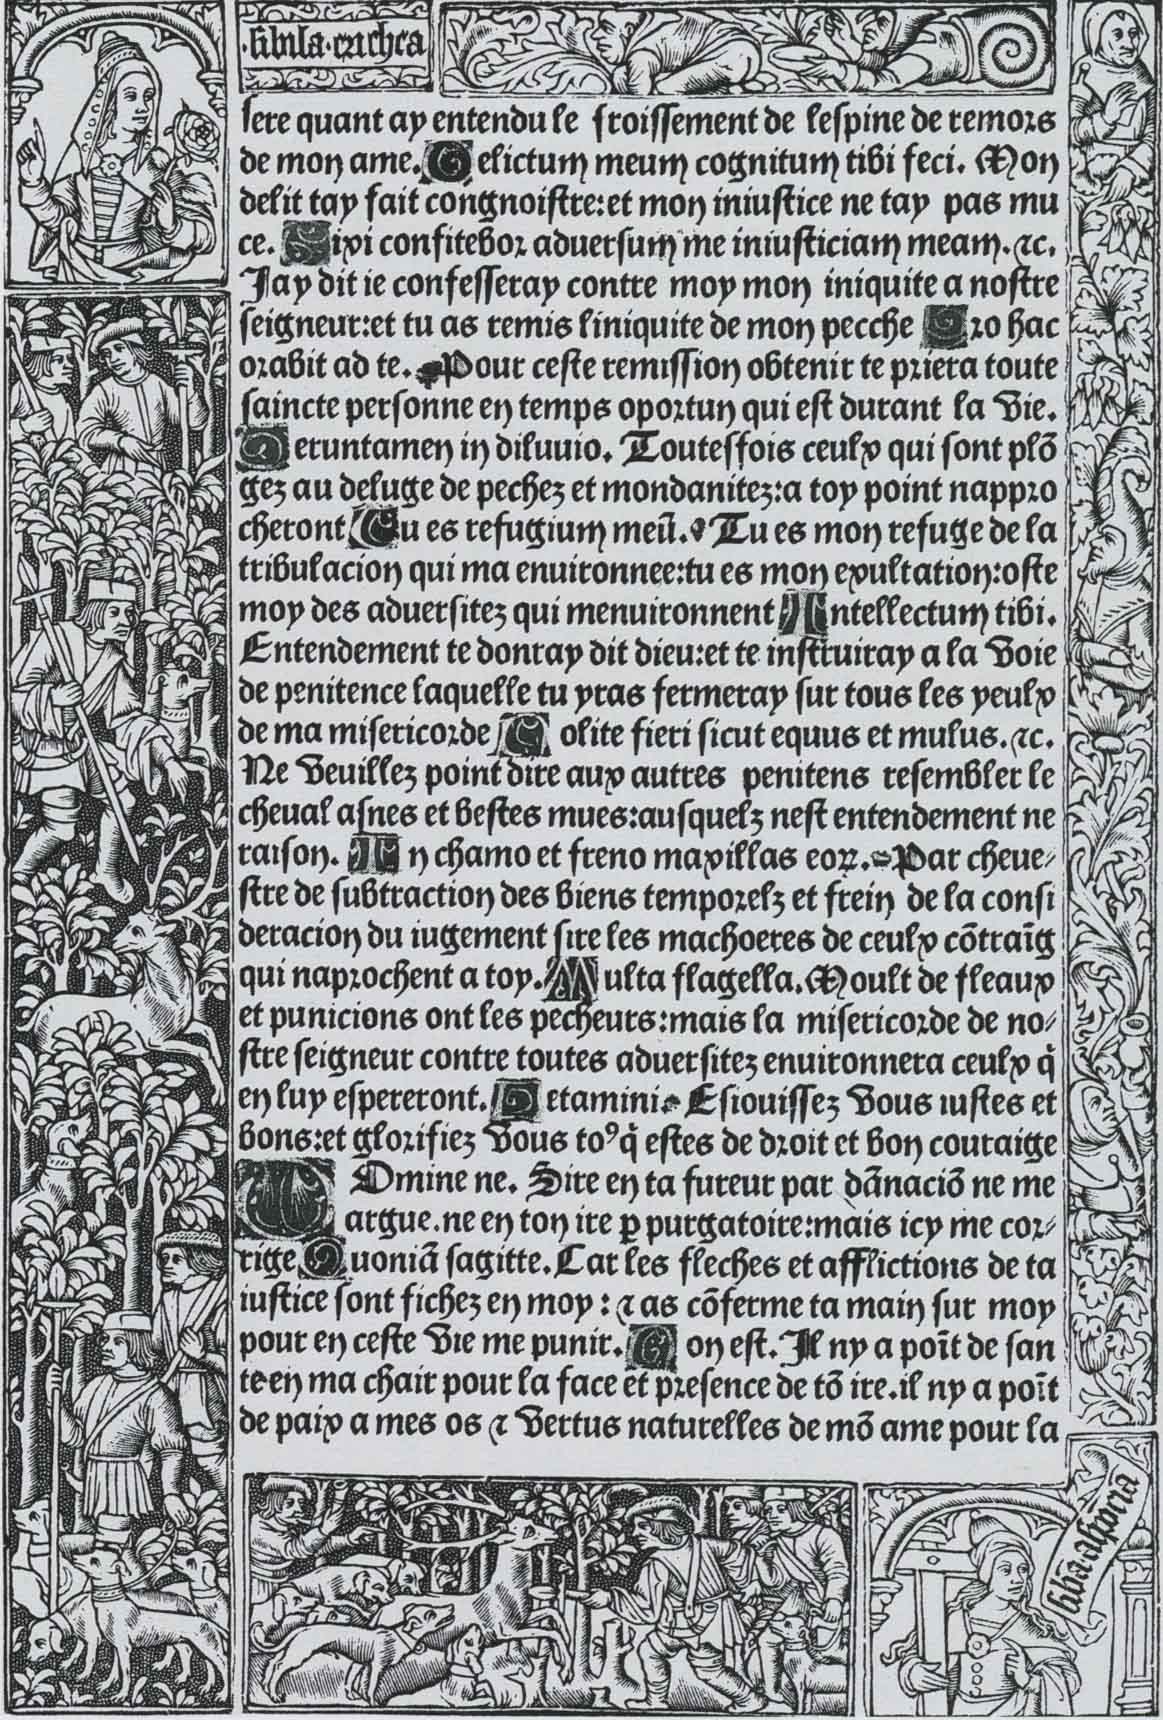 ·sibila·erichea
sere quant ay entendu le froissement de lespine de remors
de mon ame. Delictum meum cognitum tibi feci. Mon
delit tay fait congnoistre:et mon iniustice ne tay pas mu
ce. Dixi confitebor aduersum me iniusticiam meam. ⁊c.
Jay dit ie confesseray contre moy mon iniquite a nostre
seigneur:et tu as remis liniquite de mon pecche Pro hac
orabit ad te. Pour ceste remission obtenir te priera toute
saincte personne en temps oportun qui est durant la vie.
Veruntamen in diluuio. Toutesfois ceulx qui sont plõ
gez au deluge de pechez et mondanitez:a toy point nappro
cheront Tu es refugium meũ. Tu es mon refuge de la
tribulacion qui ma enuironnee:tu es mon exultation:oste
moy des aduersitez qui menuironnent Intellectum tibi.
Entendement te donray dit dieu:et te instruiray a la voie
de penitence laquelle tu yras fermeray sur tous les yeulx
de ma misericorde Nolite fieri sicut equus et mulus. ⁊c.
Ne veuillez point dire aux autres penitens resembler le
cheval asnes et bestes mues:ausquelz nest entendement ne
raison. In chamo et freno maxillas eoꝝ. Par cheue⸗
stre de subtraction des biens temporelz et frein de la consi
deracion du iugement sire les machoeres de ceulx cõtraĩg
qui naprochent a toy. Multa flagella. Moult de fleaux
et punicions ont les pecheurs:mais la misericorde de no⸗
stre seigneur contre toutes aduersitez enuironnera ceulx q̃
en luy espereront. Letamini. Esiouissez vous iustes et
bons:et glorifiez vous toꝰ q̃ estes de droit et bon couraige
Domine ne. Sire en ta fureur par dãnaciõ ne me
argue. ne en ton ire ꝑ purgatoire:mais icy me cor⸗
rige Quoniã sagitte. Car les fleches et afflictions de ta
iustice sont fichez en moy : ⁊ as cõferme ta main sur moy
pour en ceste vie me punir. Non est. Il ny a poĩt de san
te en ma chair pour la face et presence de tõ ire. il ny a poĩt
de paix a mes os ⁊ vertus naturelles de mõ ame pour la